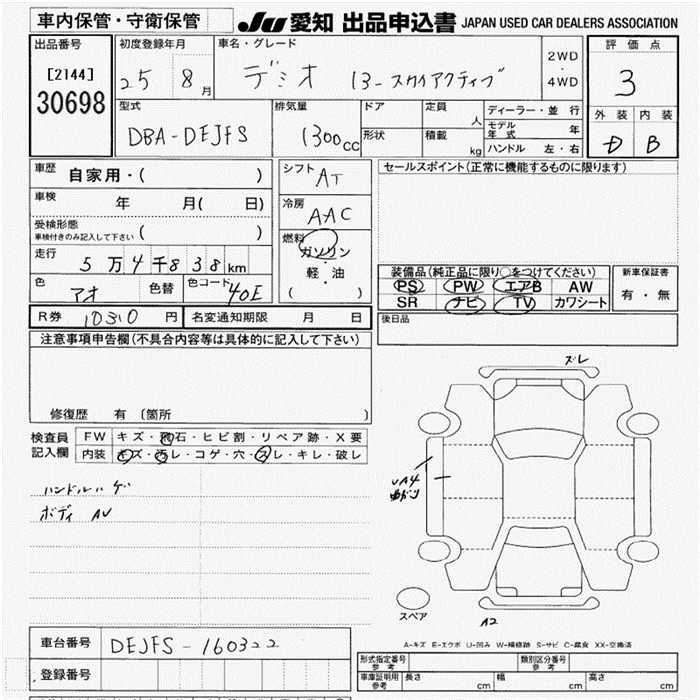 車内保管・守衛保管
JU 愛知 出品申込書 JAPAN USED CAR DEALERS ASSOCIATION
出品番号 初度登録年月 車名・グレード 2WD・4WD 評価点
[2144] 25 8月 デミオ 13-スカイアクティブ 3
30698
型式 排気量 ドア 定員 人 ディーラー・並行 外装 内装
モデル年式 年
DBA-DEJFS 1300cc 形状 積載 kg ハンドル 左・右 D B
車歴 自家用・( ) シフト AT セールスポイント(正常に機能するものに限ります)
車検 年 月( 日) 冷房 AAC
受検形態
車検付きのみ記入して下さい ( ) 燃料 ガソリン
走行 5万4千838km 軽・油 ( )
装備品(純正品に限り○をつけてください) 新車保証書
PS PW エアB AW 有・無
SR ナビ TV カワシート
色 アオ 色替 色コード 40E
R券 10310円 名変通知期限 月 日 後日品
注意事項申告欄(不具合内容等は具体的に記入して下さい)
ズレ
修復歴 有 〔箇所 〕
検査員記入欄 FW キズ・飛石・ヒビ割・リペア跡・X要
内装 キズ・汚レ・コゲ・穴・スレ・キレ・破レ
ハンドルハゲ
ボディ AU
UA4
スペア
A2
車台番号 DEJFS-160322
A-キズ E-エクボ U-凹み W-補修跡 S-サビ C-腐食 XX-交換済
型式指定番号 参考 類別区分番号 参考
登録番号 車庫証明用 参考 長さ cm 幅 cm 高さ cm